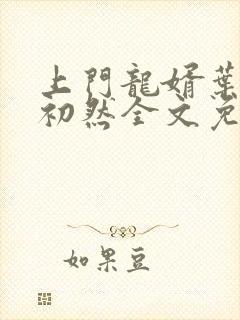 上門龍婿葉
初然全文免
如果豆